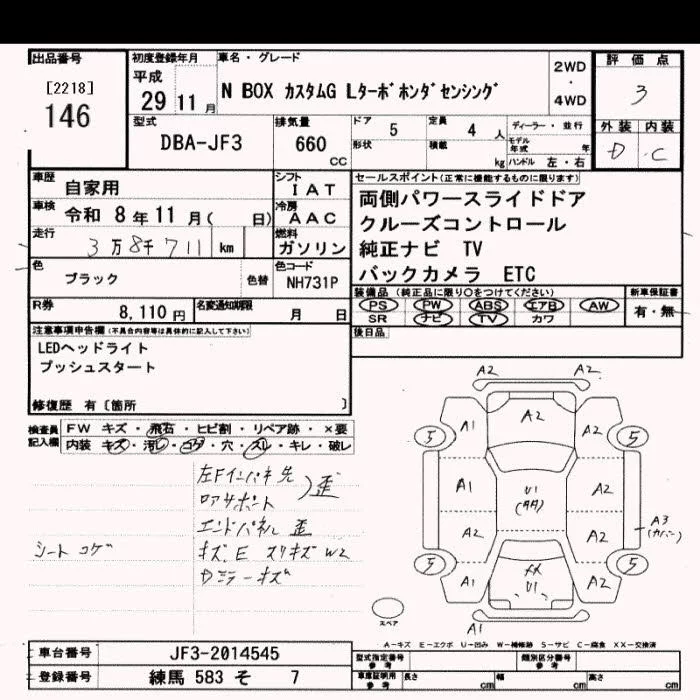 出品番号
[2218]
146
初度登録年月
平成
29 11月
車名・グレード
N BOX カスタムG Lターボホンダセンシング
2WD
・
4WD
評価点
3
外装 内装
D C
型式
DBA-JF3
排気量
660
CC
ドア 5
形状
定員 4 人
積載 kg
ディーラー・並行
モデル年式 年
ハンドル 左・右
車歴 自家用
車検 令和 8年 11月( 日)
走行 3万8千711 km
色 ブラック 色替
シフト IAT
冷房 AAC
燃料 ガソリン
色コード NH731P
R券 8,110円
名変通知期限 月 日
セールスポイント(正常に機能するものに限ります)
両側パワースライドドア
クルーズコントロール
純正ナビ TV
バックカメラ ETC
装備品(純正品に限り○をつけてください)
PS PW ABS エアB AW
SR ナビ TV カワ
新車保証書
有・無
後日品
注意事項申告欄(不具合内容等は具体的に記入して下さい)
LEDヘッドライト
プッシュスタート
修復歴 有〔箇所 〕
検査員記入欄
FW キズ・飛石・ヒビ割・リペア跡・×要
内装 キズ・汚レ・コゲ・穴・スレ・キレ・破レ
左Fインパネ先
ロアサポート
歪
エンドパネル 歪
キズ、E スリキズ W2
シート コゲ
Dミラーキズ
A2 A2
A2
A1
5 5
A1
U1
A2
A2
A2
A3
(カバー)
5 5
A1
XX
U1
A2
A1
スペア
A-キズ E-エクボ U-凹み W-補修跡 S-サビ C-腐食 XX-交換済
車台番号 JF3-2014545
登録番号 練馬 583 そ 7
型式指定番号
参考
類別区分番号
参考
車庫証明用
参考
長さ cm
幅 cm
高さ cm